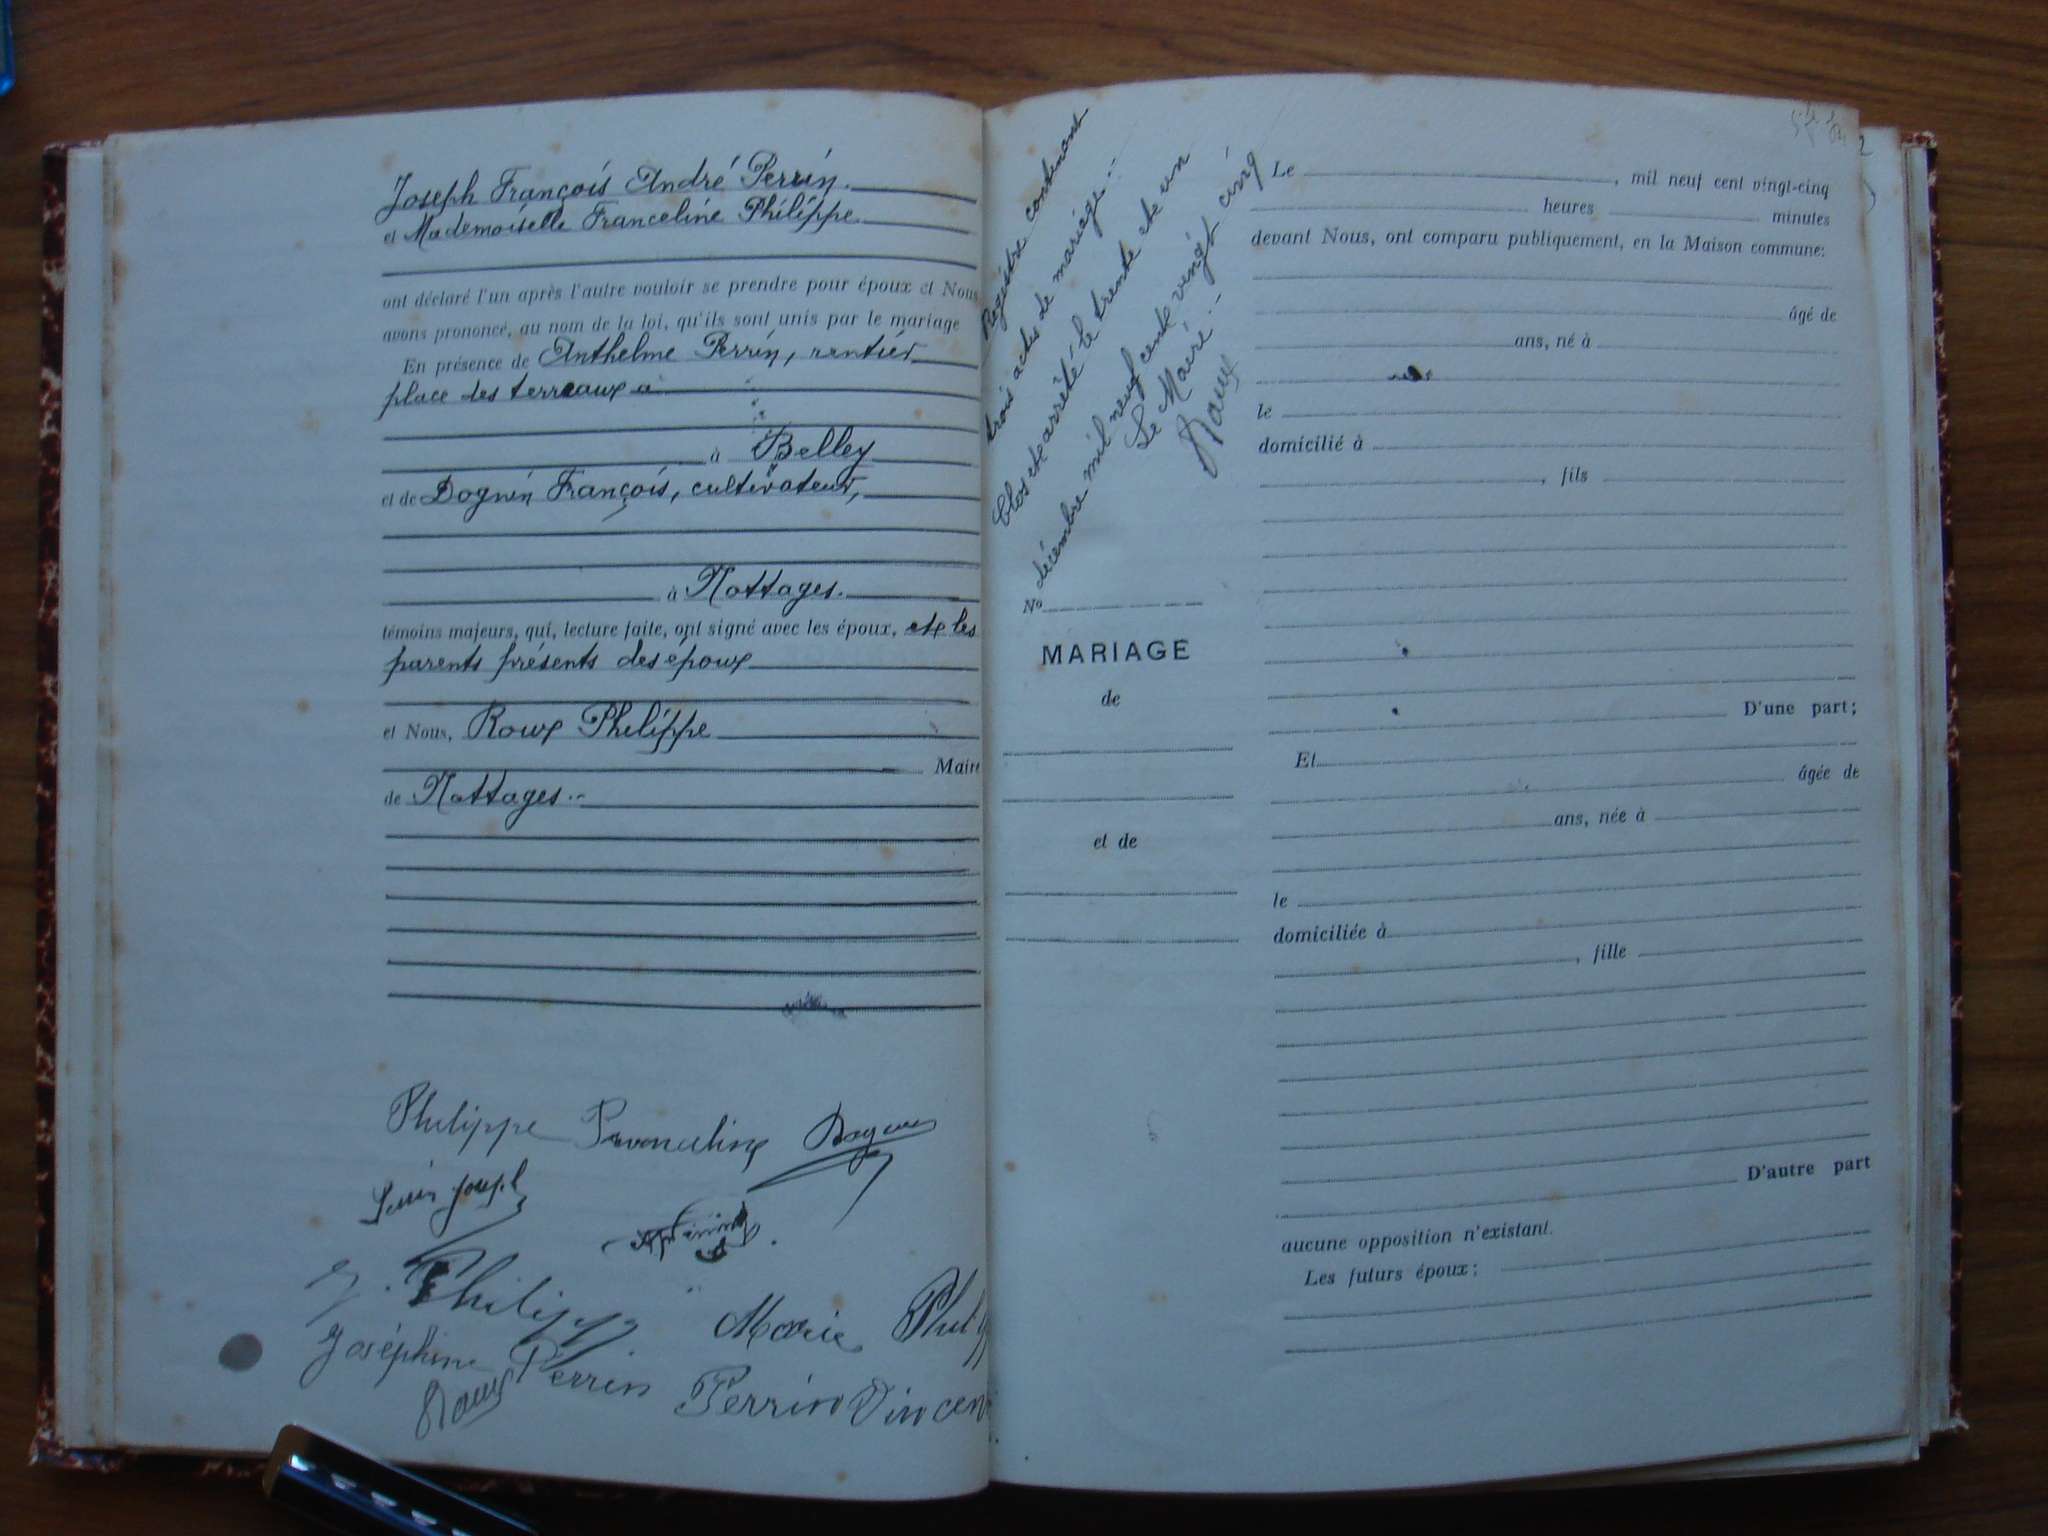 Joseph François André Perrin.
et Mademoiselle Franceline Philippe
ont déclaré l'un après l'autre vouloir se prendre pour époux et Nous
avons prononcé, au nom de la loi, qu'ils sont unis par le mariage
En présence de Anthelme Perrin, rentier
place des terreaux à
à Belley
et de Dognin François, cultivateur,
à Nattages.
témoins majeurs, qui, lecture faite, ont signé avec les époux, et les
parents présents des époux
et Nous, Roux Philippe
Maire
de Nattages.
Philippe Franceline Dognin
Perrin Joseph
J. Philippe Marie
Joséphine Perrin Perrin Vincent
Roux
Registre contenant
trois actes de mariage.
Clos et arrêté le trente et un
décembre mil neuf cent vingt cinq
Le Maire
Roux
No
MARIAGE
de
et de
Le , mil neuf cent vingt-cinq
heures minutes
devant Nous, ont comparu publiquement, en la Maison commune:
âgé de
ans, né à
le
domicilié à
, fils
D'une part;
Et
âgée de
ans, née à
le
domiciliée à
, fille
D'autre part
aucune opposition n'existant.
Les futurs époux;